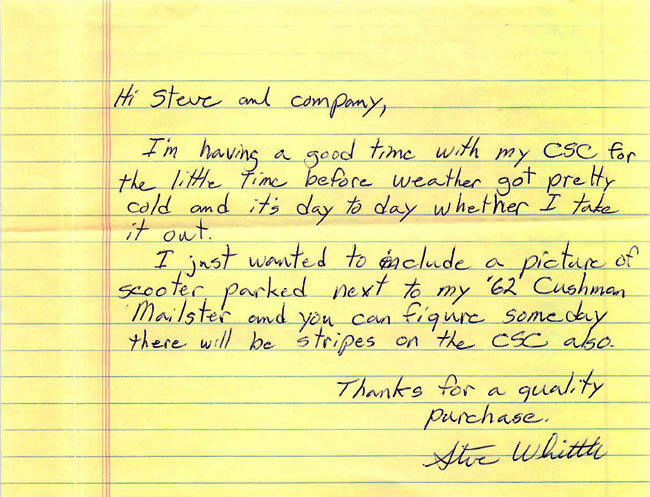 Hi Steve and company,
I'm having a good time with my CSC for
the little time before weather got pretty
cold and it's day to day whether I take
it out.
I just wanted to include a picture of
scooter parked next to my '62 Cushman
Mailster and you can figure someday
there will be stripes on the CSC also.
Thanks for a quality
purchase.
Steve Whittle